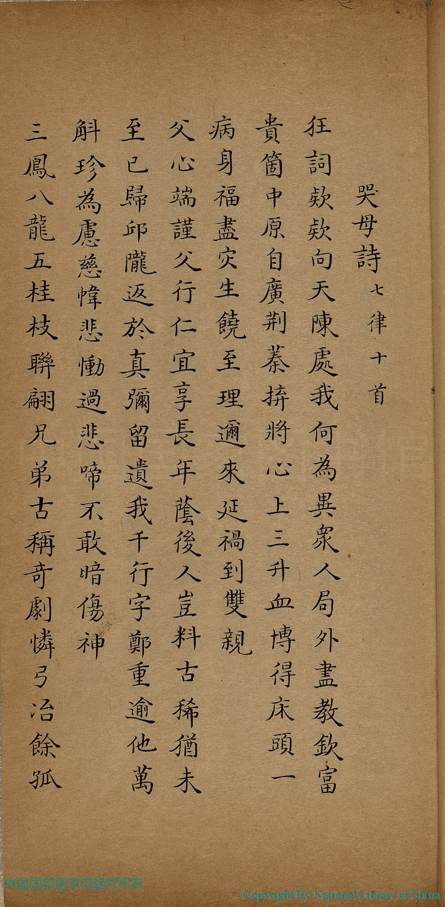 哭母詩 七律十首
狂詞欵欵向天陳處我何為異衆人局外盡教欽富
貴箇中原自廣荆蓁拚將心上三升血博得床頭一
病身福盡灾生饒至理邇來延禍到雙親
父心端謹父行仁宜享長年蔭後人豈料古稀猶未
至已歸邱隴返於真彌留遺我千行字鄭重逾他萬
斛珍為慮慈幃悲慟過悲啼不敢暗傷神
三鳳八龍五桂枝聯翩兄弟古稱奇劇憐弓冶餘孤
中国国家图书馆版权所有
Copyright By National Library of China